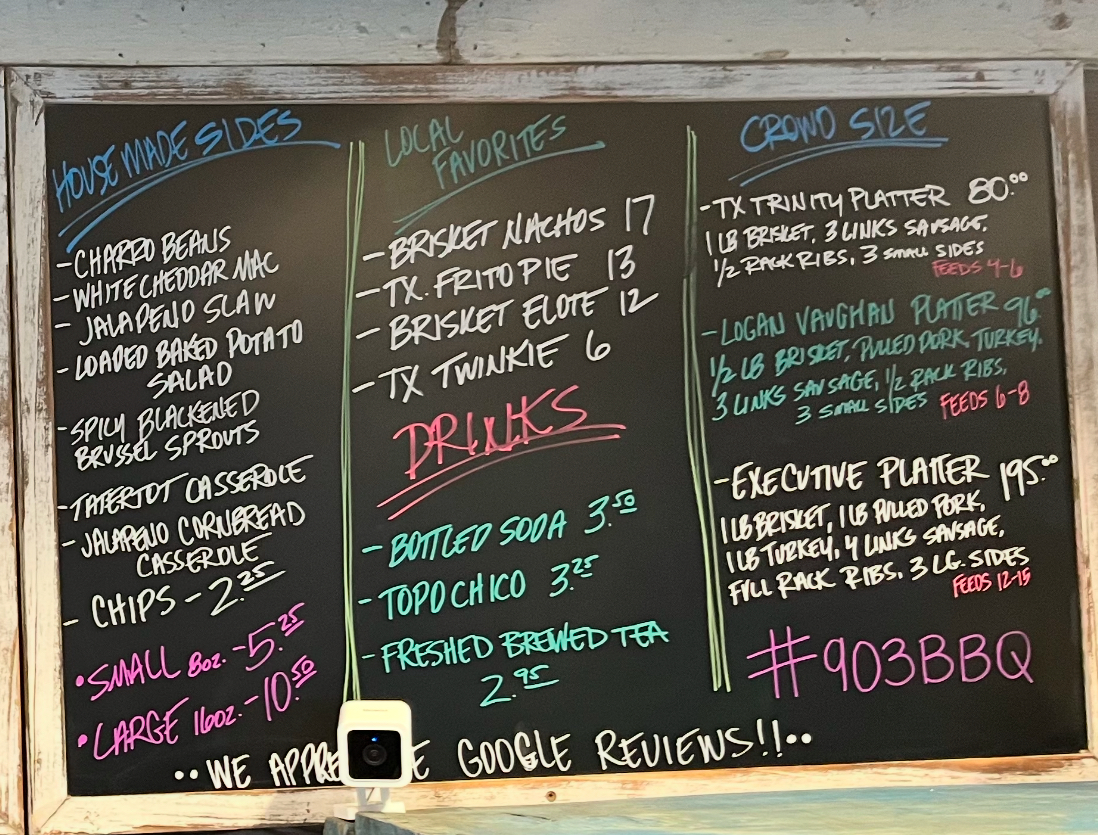 HOUSE MADE SIDES
- CHARRO BEANS
- WHITE CHEDDAR MAC
- JALAPENO SLAW
- LOADED BAKED POTATO
SALAD
- SPICY BLACKENED
BRUSSEL SPROUTS
- TATERTOT CASSEROLE
- JALAPENO CORNBREAD
CASSEROLE
- CHIPS - 2.25
• SMALL 8oz. - 5.25
• LARGE 16oz. - 10.50
LOCAL
FAVORITES
- BRISKET NACHOS 17
- TX. FRITO PIE 13
- BRISKET ELOTE 12
- TX TWINKIE 6
DRINKS
- BOTTLED SODA 3.50
- TOPO CHICO 3.25
- FRESHED BREWED TEA
2.95
CROWD SIZE
- TX TRINITY PLATTER 80.00
1 LB BRISKET, 3 LINKS SAUSAGE,
1/2 RACK RIBS, 3 SMALL SIDES
FEEDS 4-6
- LOGAN VAUGHAN PLATTER 96.00
1/2 LB BRISKET, PULLED PORK, TURKEY.
3 LINKS SAUSAGE, 1/2 RACK RIBS,
3 SMALL SIDES FEEDS 6-8
- EXECUTIVE PLATTER 195.00
1 LB BRISKET, 1 LB PULLED PORK,
1 LB TURKEY, 4 LINKS SAUSAGE,
FULL RACK RIBS, 3 LG. SIDES
FEEDS 12-15
#903BBQ
•• WE APPRE E GOOGLE REVIEWS!! ••